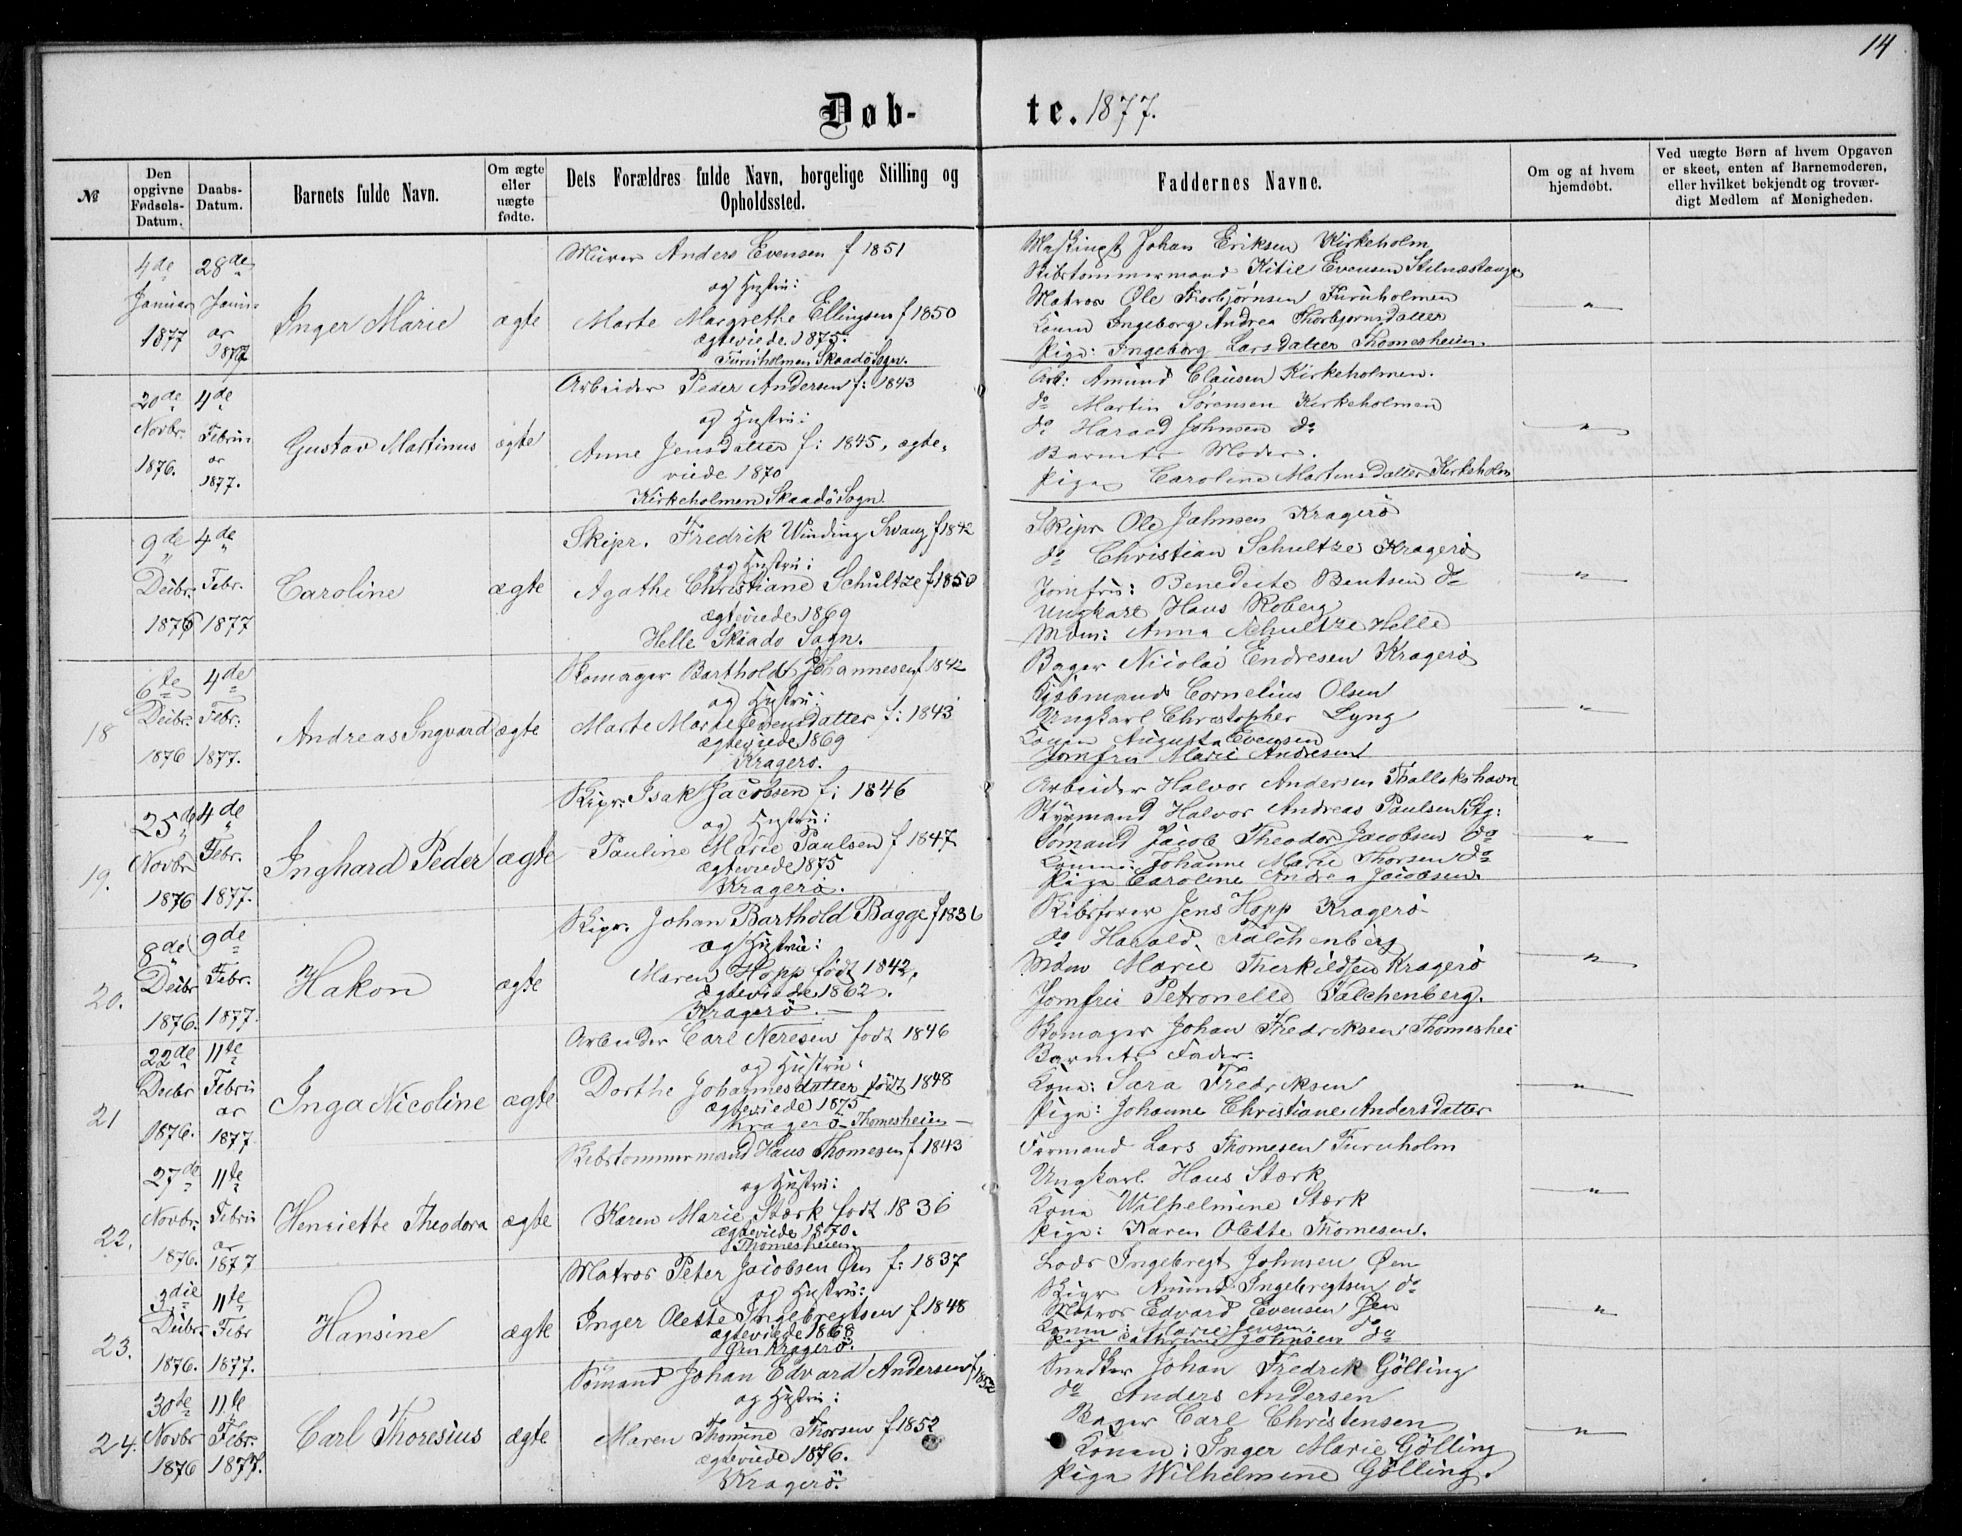 14
Døb-
te. 1877.
№
Den opgivne Fødsels-Datum.
Daabs-Datum.
Barnets fulde Navn.
Om ægte eller uægte fødte.
Dets Forældres fulde Navn, borgelige Stilling og Opholdssted.
Faddernes Navne.
Om og af hvem hjemdøbt.
Ved uægte Børn af hvem Opgaven er skeet, enten af Barnemoderen, eller hvilket bekjendt og troværdigt Medlem af Menigheden.
4de Januar 1877
28de Januar 1877
Inger Marie
ægte
Murer Anders Evensen f 1851
og Hustru:
Marte Margrethe Ellingsen f 1850
ægteviede 1875.
Furuholmen Skaadö Sogn.
Maskinst Johan Eriksen Kirkeholm
Skibstømmermand Kitil Evensen Stilnæstangen
Matros Ole Thorbjørnsen Furuholmen
Konen Ingeborg Andrea Thorbjornsdatter
Pige: Ingeborg Larsdatter Thomesheien.
"
20de Novbr. 1876.
4de Februar 1877.
Gustav Martinus
ægte
Arbeider Peder Andersen f: 1843
og Hustru:
Anne Jensdatter f: 1845, ægte-
viede 1870
Kirkeholmen Skaadö Sogn.
Arb: Amund Clausen Kirkeholmen.
do Martin Sørensen Kirkeholmen
do Harald Johnsen do
Barnets Moder.
Pige Caroline Martinsdatter Kirkeholm
"
9de Decbr. 1876
4de Febr. 1877
Caroline
ægte
Skipr. Fredrik Winding Svang f 1842
og Hustru:
Agathe Christiane Schultze f 1850
ægteviede 1869
Helle Skaado Sogn.
Skipr Ole Jahnsen Kragerö
do Christian Schultze Kragerö
Jomfru: Benedicte Bentsen do
Ungkarl Hans Roberg
Mdm: Anna Schultze Helle
"
18
6te Decbr. 1876
4de Febr. 1877.
Andreas Ingvard
ægte
Skomager Barthold Johannesen f 1842
og Hustru:
Marte Marie Evensdatter f: 1843
ægteviede 1869
Kragerö.
Bager Nicolai Endresen Kragerö
Kjöbmand Cornelius Olsen
Ungkarl Christopher Lyng
Konen Augusta Evensen
Jomfru Marie Andresen
"
19.
25de Novbr 1876
4de Febr. 1877.
Inghard Peder
ægte
Skipr. Isak Jacobsen f: 1846
og Hustru:
Pauline Marie Paulsen f 1847
ægteviede 1875
Kragerö.
Arbeider Halvor Andersen Thallakshavn
Styrmand Halvor Andreas Paulsen Stg:
Sømand Jacob Theodor Jacobsen do
Konen: Johanne Marie Thorsen do
Pige Caroline Andrea Jacobsen.
"
20.
8de Decbr 1876.
9de Febr. 1877.
Hakon
ægte
Skipr. Johan Barthold Bagge f 1836
og Hustru:
Maren Hopp født 1842,
ægteviede 1862.
Kragerö.
Skibsfører Jens Hopp Kragerö
do Harald Falchenberg
Mdm Marie Therkildsen Kragerö
Jomfru Petronelle Falchenberg.
"
21
22de Decbr 1876.
11te Februar 1877
Inga Nicoline
ægte
Arbeider Carl Neresen født 1846
og Hustru:
Dorthe Johannesdatter født 1848
ægteviede 1875
Kragerö Thomesheien
Skomager Johan Fredriksen Thomeshei
Barnets Fader.
Kone: Sara Fredriksen
Pige: Johanne Christiane Andersdatter
"
22.
27de Novbr. 1876.
11te Februar 1877
Henriette Theodora
ægte
Skibstømmermand Hans Thomesen f 1843
og Hustru:
Karen Marie Stærk født 1836
ægteviede 1870.
Thomesheien
Formand Lars Thomesen Furuholm
Ungkarl Hans Stærk
Kone Wilhelmine Stærk
Pige: Karen Olette Thomesen.
"
23.
3die Decbr 1876.
11te Febr 1877.
Hansine
ægte
Matros Peter Jacobsen Øen f: 1837
og Hustru:
Inger Olette Ingebregtsen f 1848
ægteviede 1868
Øen Kragerö.
Lods Ingebregt Johnsen Øen
Skipr Amund Ingebregtsen do
Matros Edvard Evensen Øen
Konen: Marie Jensen do
Pige Cathrine Johnsen do
"
24.
30te Novbr 1876
11te Febr. 1877.
Carl Thoresius
ægte
Sömand Johan Edvard Andersen f 1852
og Hustru:
Maren Thomine Thorsen f 1852
ægteviede 1876.
Kragerö.
Snedker Johan Fredrik Gölling
do Anders Andersen
Bager Carl Christensen
Konen: Inger Marie Gölling
Pige Wilhelmine Gölling.
"